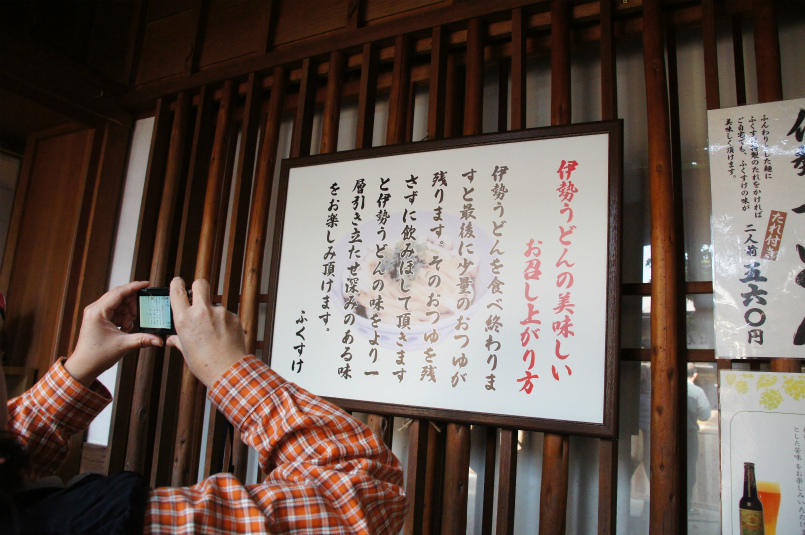 伊勢うどんの美味しい
お召し上がり方
伊勢うどんを食べ終わりま
すと最後に少量のおつゆが
残ります。そのおつゆを残
さずに飲みほして頂きます
と伊勢うどんの味をより一
層引き立たせ深みのある味
をお楽しみ頂けます。
ふくすけ
たれ付き
二人前 五六〇円
ふんわりとした麺に
ふくすけ特製のたれをかければ
ご自宅でも、ふくすけの味が
美味しく頂けます。